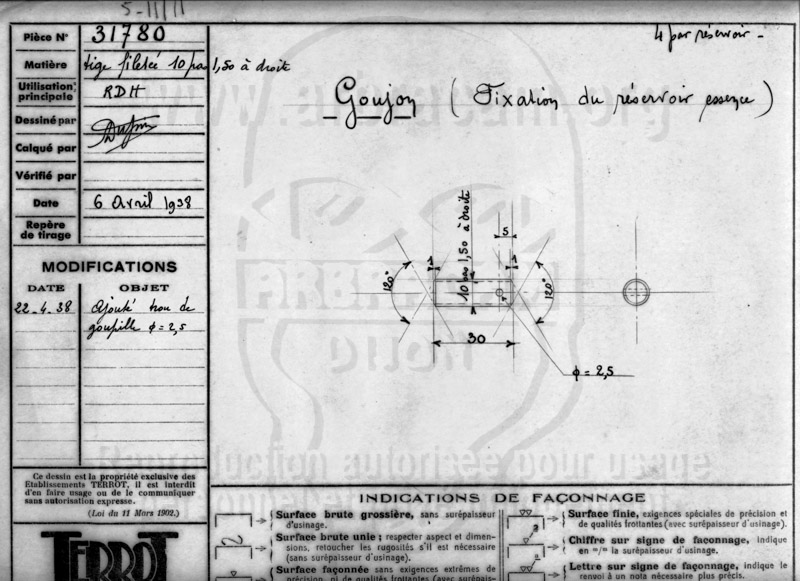 5-11/11
Pièce N° 31780
4 par réservoir -
Matière tige filetée 10 pas 1,50 à droite
Utilisation principale RDH
Goujon ( Fixation du réservoir essence )
Dessiné par
Calqué par
Vérifié par
Date 6 Avril 1938
Repère de tirage
MODIFICATIONS
DATE OBJET
22-4-38 Ajouté trou de
goupille φ = 2,5
10 pas 1,50 à droite
5
1
1
120°
120°
30
φ = 2,5
www.
.org
ARBRACAM
DIJON
Reproduction autorisée pour usage
Ce dessin est la propriété exclusive des
Etablissements TERROT, il est interdit
d'en faire usage ou de le communiquer
sans autorisation expresse.
(Loi du 11 Mars 1902.)
TERROT
INDICATIONS DE FAÇONNAGE
Surface brute grossière, sans surépaisseur
d'usinage.
Surface brute unie; respecter aspect et dimen-
sions, retoucher les rugosités s'il est nécessaire
(sans surépaisseur d'usinage).
Surface façonnée sans exigences extrêmes de
précision, ni de qualités frottantes (avec surépais-
Surface finie, exigences spéciales de précision et
de qualités frottantes (avec surépaisseur d'usinage).
Chiffre sur signe de façonnage, indique
en "/" la surépaisseur d'usinage.
Lettre sur signe de façonnage, indique le
renvoi à un nota nécessaire plus précis.